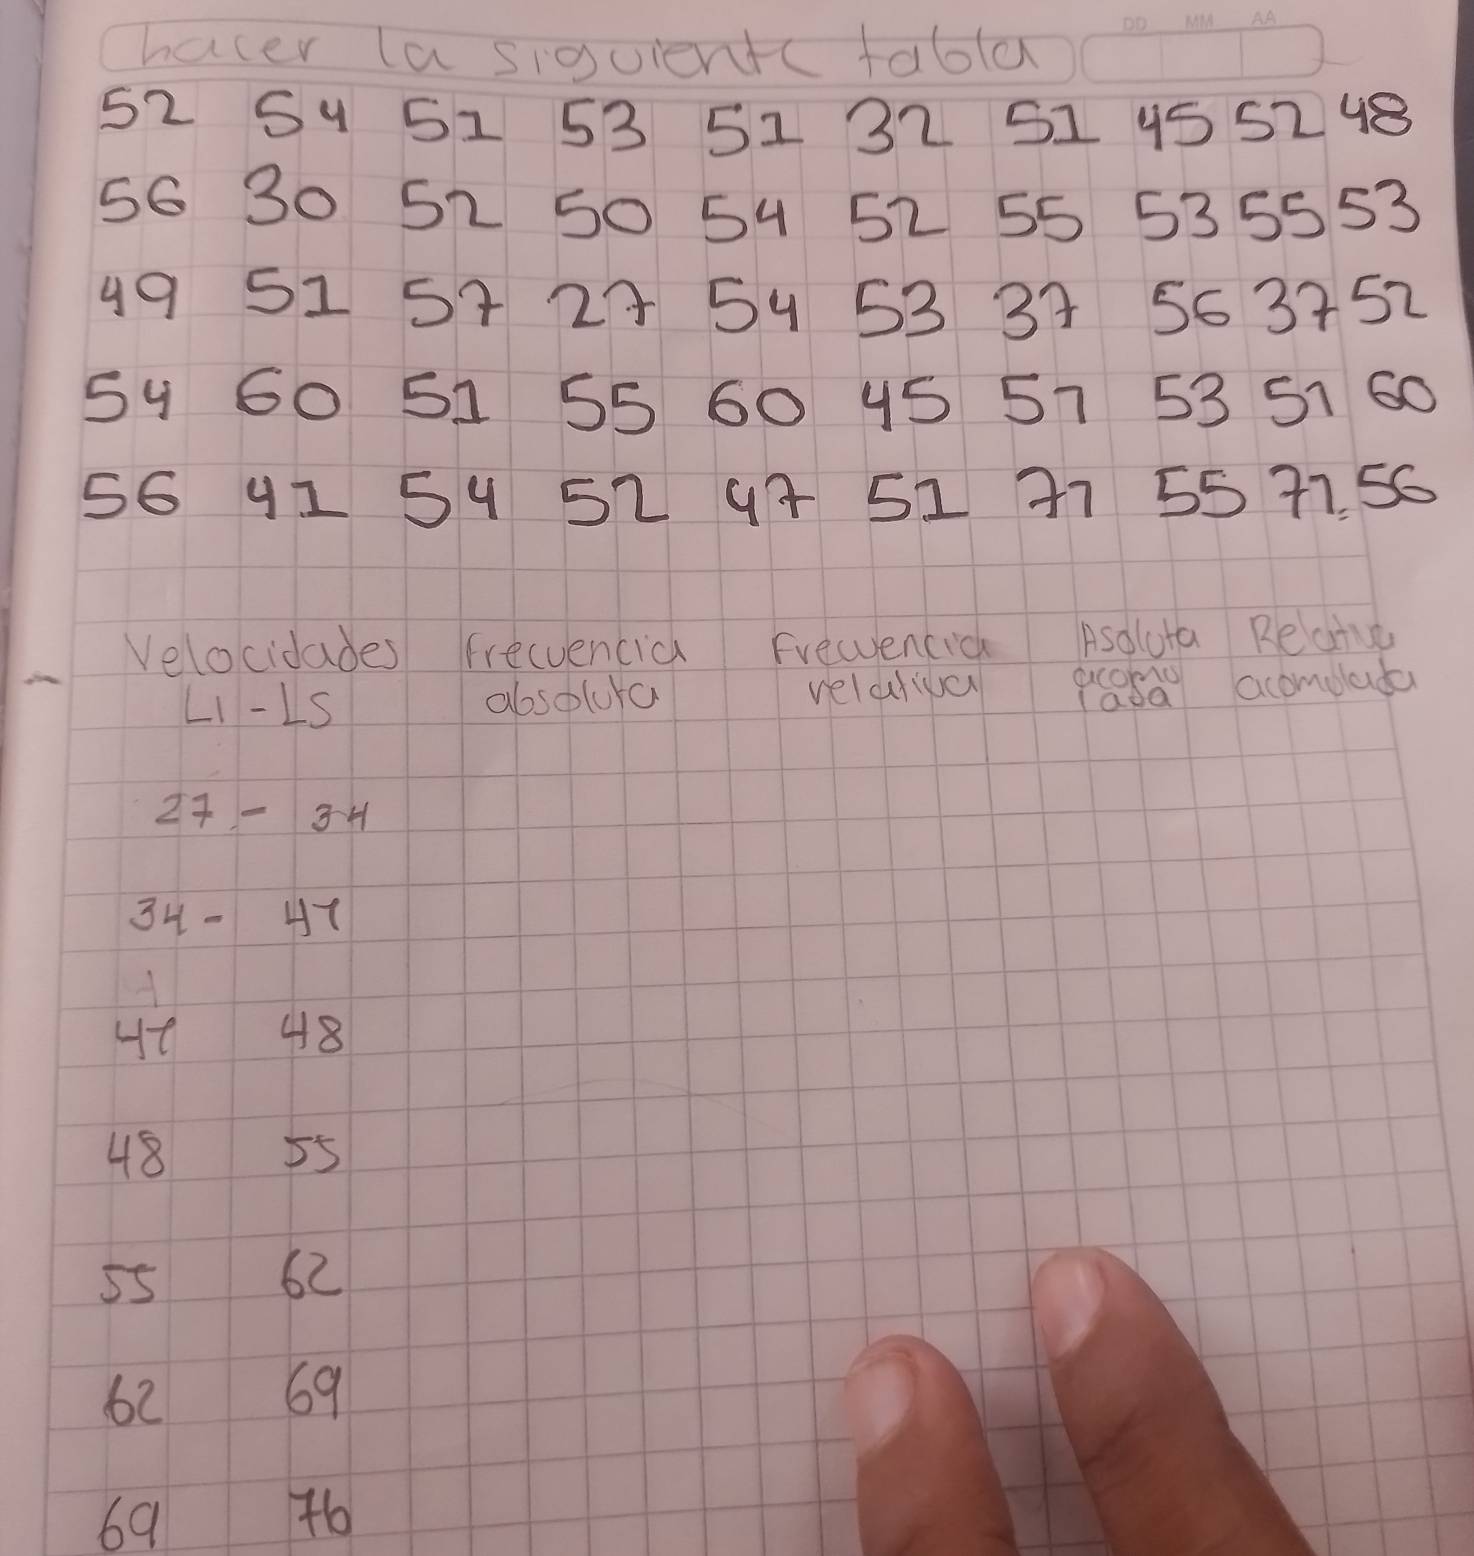 DD MM AA
hacer la siguiente tabla
52 54 51 53 51 32 51 45 52 48
56 30 52 50 54 52 55 53 55 53
49 51 57 27 54 53 37 56 37 52
54 60 51 55 60 45 57 53 51 60
56 41 54 52 47 51 71 55 71. 56
Velocidades Frecuencia Frecuencia Asoluta Relativa
LI - LS absoluta relativa acomu acomulada
lada
27 - 34
34 - 41
41 48
48 55
55 62
62 69
69 76